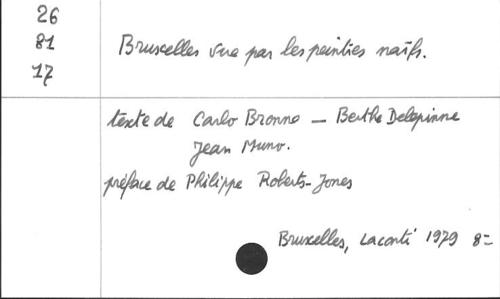 26
81
17
Bruxelles vue par les peintres naïfs.
texte de Carlo Bronne — Berthe Delepinne
Jean Muno.
préface de Philippe Roberts-Jones
Bruxelles, Laconti 1979 8=